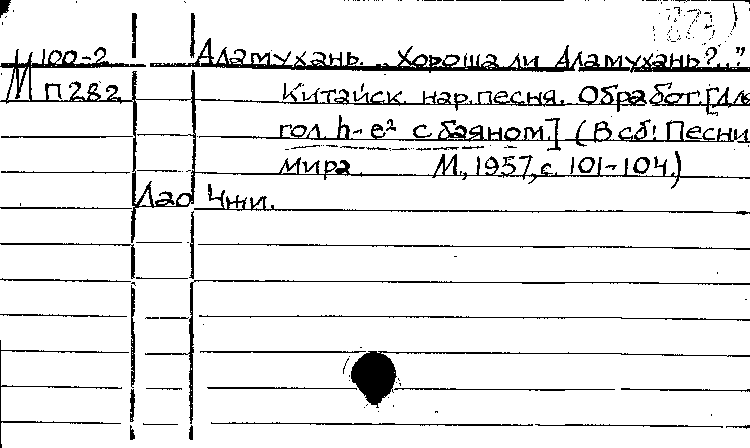 1873)
М 100-2 Аламухань. „Хороша ли Аламухань?..."
П 282 Китайск. нар. песня. Обработ. [Для
гол. h-e² с баяном] (В сб: Песни
мира. М., 1957, с. 101-104.)
Лао Чжи.